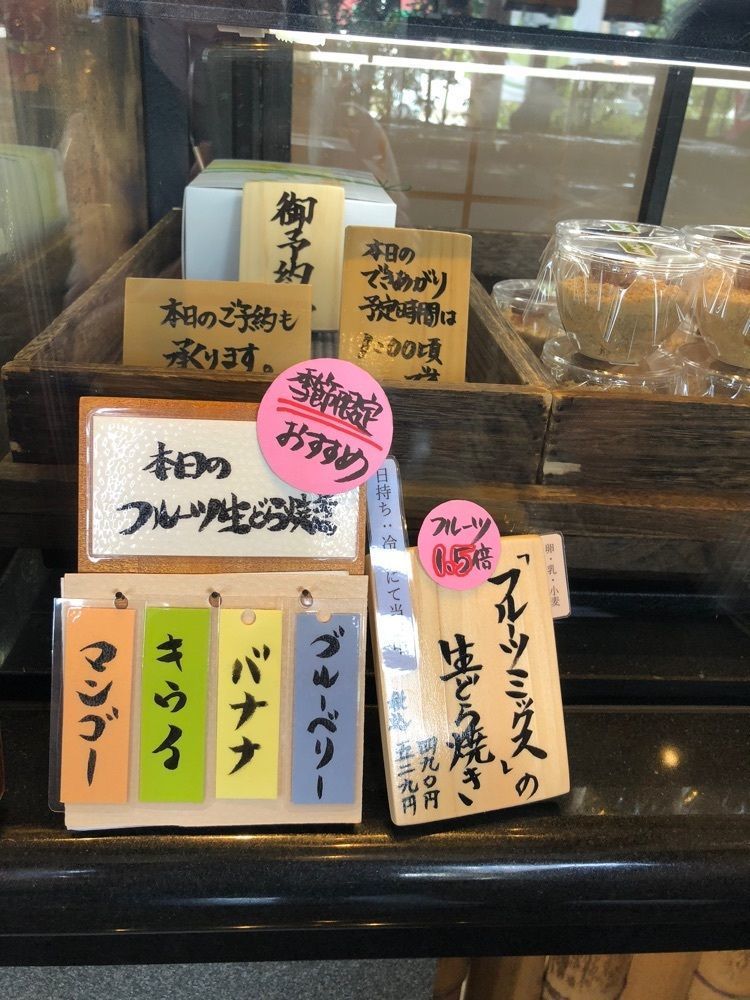 御予約
本日の
できあがり
予定時間は
本日のご予約も
承ります。
季節限定
おすすめ
本日の
フルーツ生どら焼き
マンゴー
キウイ
バナナ
ブルーベリー
日持ち:冷
にて当
フルーツ
1.5倍
卵・乳・小麦
「フルーツミックス」の
生どら焼き
四九〇円
税込
五二九円